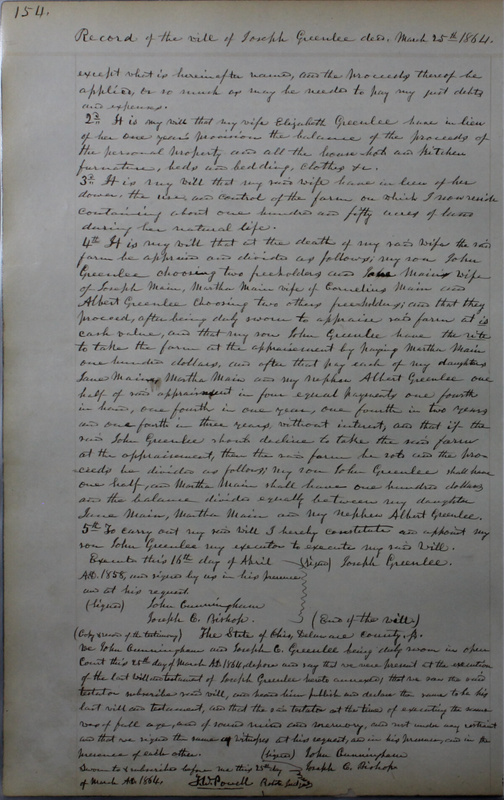 154.
Record of the will of Joseph Greenlee decd. March 25th 1864.
except what is hereinafter named, and the proceeds thereof be
applied, or so much as may be needed to pay my just debts
and expenses.
2nd It is my will that my wife Elizabeth Greenlee have in lieu
of her one years provision the balance of the proceeds of
the personal property and all the household and Kitchen
furniture, beds and bedding, clothes &c.
3rd It is my will that my said wife have in lieu of her
dower, the use and control of the farm on which I now reside
containing about one hundred and fifty acres of land
during her natural life.
4th It is my will that at the death of my said wife the said
farm be appraised and divided as follows; my son John
Greenlee choosing two freeholders and Jane Main wife
of Joseph Main, Martha Main wife of Cornelius Main and
Albert Greenlee choosing two others freeholders; and that they
proceed, after being duly sworn to appraise said farm at is
cash value, and that my son John Greenlee have the rite
to take the farm at the appraisement by paying Martha Main
one hundred dollars, and after that pay each of my daughters
Jane Main, Martha Main and my nephew Albert Greenlee one
half of said appraisment in four equal payments one fourth
in hand, one fourth in one year, one fourth in two years
and one fourth in three years, without interest, and that if the
said John Greenlee should decline to take the said farm
at the appraisement, then the said farm be sold and the pro-
ceeds be divided as follows; my son John Greenlee shall have
one half, and Martha Main shall have one hundred dollars
and the balance divided equally between my daughter
Jane Main, Martha Main and my nephew Albert Greenlee.
5th To carry out my said will I hereby constitute and appoint my
son John Greenlee my executor to execute my said Will.
Execute this 16th day of April (Signed) Joseph Greenlee.
AD. 1858, and signed by us in his presence
and at his request
(Signed) John Cunningham
Joseph C. Bishop. (End of the will)
(Copy of the testimony) The State of Ohio, Delaware County, ss.
We John Cunningham and Joseph C. Greenlee being duly sworn in open
Court this 25th day of March AD 1864 depose and say that we were present at the execution
of the last will and testament of Joseph Greenlee hereto annexed; that we saw the said
testator subscribe said will, and heard him publish and declare the same to be his
last will and testament, and that the said testator at the time of executing the same
was of full age, and of sound mind and memory, and not under any restraint
and that we signed the same as witnesses at his request, and in his presence, and in the
presence of each other. (Signed) John Cunningham
Sworn to & subscribed before me this 25th day Joseph C. Bishop
of March AD 1864. Powell Probate Judge